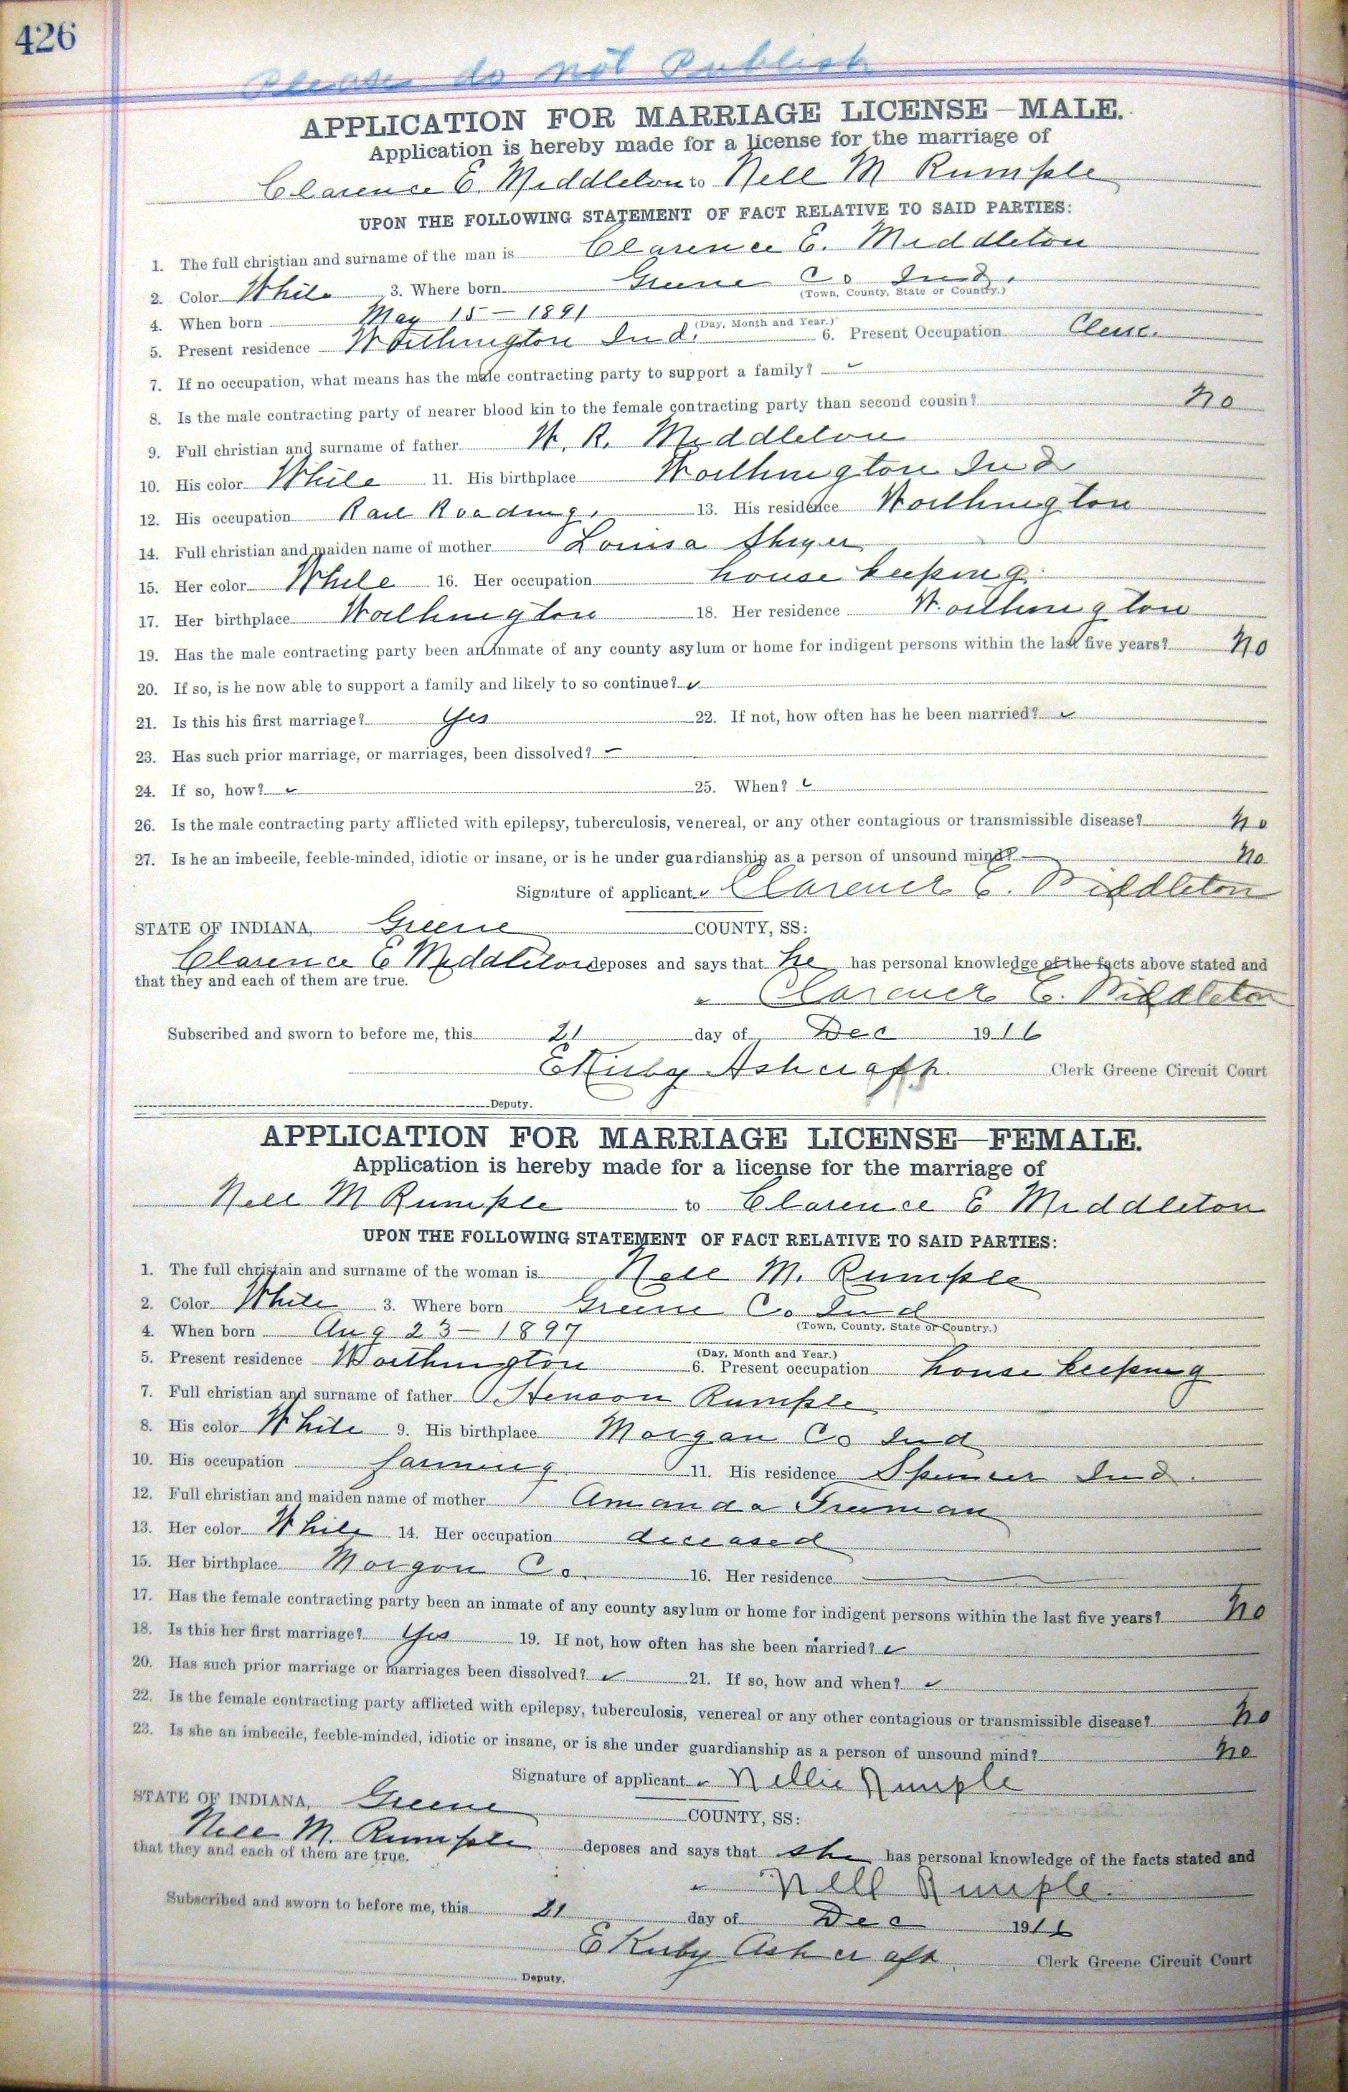 426
Please do not Publish
APPLICATION FOR MARRIAGE LICENSE—MALE.
Application is hereby made for a license for the marriage of
Clarence E. Middleton to Nell M Rumple
UPON THE FOLLOWING STATEMENT OF FACT RELATIVE TO SAID PARTIES:
1. The full christian and surname of the man is Clarence E. Middleton
2. Color White 3. Where born Greene Co Ind.
(Town, County, State or Country.)
4. When born May 15 – 1891
(Day, Month and Year.)
5. Present residence Worthington Ind. 6. Present Occupation Clerk.
7. If no occupation, what means has the male contracting party to support a family? ✓
8. Is the male contracting party of nearer blood kin to the female contracting party than second cousin? No
9. Full christian and surname of father W. R. Middleton
10. His color White 11. His birthplace Worthington Ind
12. His occupation Rail Roading, 13. His residence Worthington
14. Full christian and maiden name of mother Louisa
15. Her color White 16. Her occupation house keeping
17. Her birthplace Worthington 18. Her residence Worthington
19. Has the male contracting party been an inmate of any county asylum or home for indigent persons within the last five years? No
20. If so, is he now able to support a family and likely to so continue? ✓
21. Is this his first marriage? Yes 22. If not, how often has he been married? ✓
23. Has such prior marriage, or marriages, been dissolved? ✓
24. If so, how? ✓ 25. When? ✓
26. Is the male contracting party afflicted with epilepsy, tuberculosis, venereal, or any other contagious or transmissible disease? No
27. Is he an imbecile, feeble-minded, idiotic or insane, or is he under guardianship as a person of unsound mind? No
Signature of applicant ✓ Clarence E. Middleton
STATE OF INDIANA, Greene COUNTY, SS:
Clarence E Middleton deposes and says that he has personal knowledge of the facts above stated and
that they and each of them are true.
✓ Clarence E. Middleton
Subscribed and sworn to before me, this 21 day of Dec 1916
E Kirby Ashcraft Clerk Greene Circuit Court
Deputy.
APPLICATION FOR MARRIAGE LICENSE—FEMALE.
Application is hereby made for a license for the marriage of
Nell M Rumple to Clarence E Middleton
UPON THE FOLLOWING STATEMENT OF FACT RELATIVE TO SAID PARTIES:
1. The full christain and surname of the woman is Nell M. Rumple
2. Color White 3. Where born Greene Co Ind
(Town, County, State or Country.)
4. When born Aug 23 – 1897
(Day, Month and Year.)
5. Present residence Worthington 6. Present occupation house keeping
7. Full christian and surname of father Henson Rumple
8. His color White 9. His birthplace Morgan Co Ind
10. His occupation farming 11. His residence Spencer Ind.
12. Full christian and maiden name of mother Amanda Freeman
13. Her color White 14. Her occupation deceased
15. Her birthplace Morgan Co. 16. Her residence
17. Has the female contracting party been an inmate of any county asylum or home for indigent persons within the last five years? No
18. Is this her first marriage? Yes 19. If not, how often has she been married? ✓
20. Has such prior marriage or marriages been dissolved? ✓ 21. If so, how and when? ✓
22. Is the female contracting party afflicted with epilepsy, tuberculosis, venereal or any other contagious or transmissible disease? No
23. Is she an imbecile, feeble-minded, idiotic or insane, or is she under guardianship as a person of unsound mind? No
Signature of applicant ✓ Nellie Rumple
STATE OF INDIANA, Greene COUNTY, SS:
Nell M. Rumple deposes and says that she has personal knowledge of the facts stated and
that they and each of them are true.
✓ Nell Rumple.
Subscribed and sworn to before me, this 21 day of Dec 1916
E Kirby Ashcraft Clerk Greene Circuit Court
Deputy.